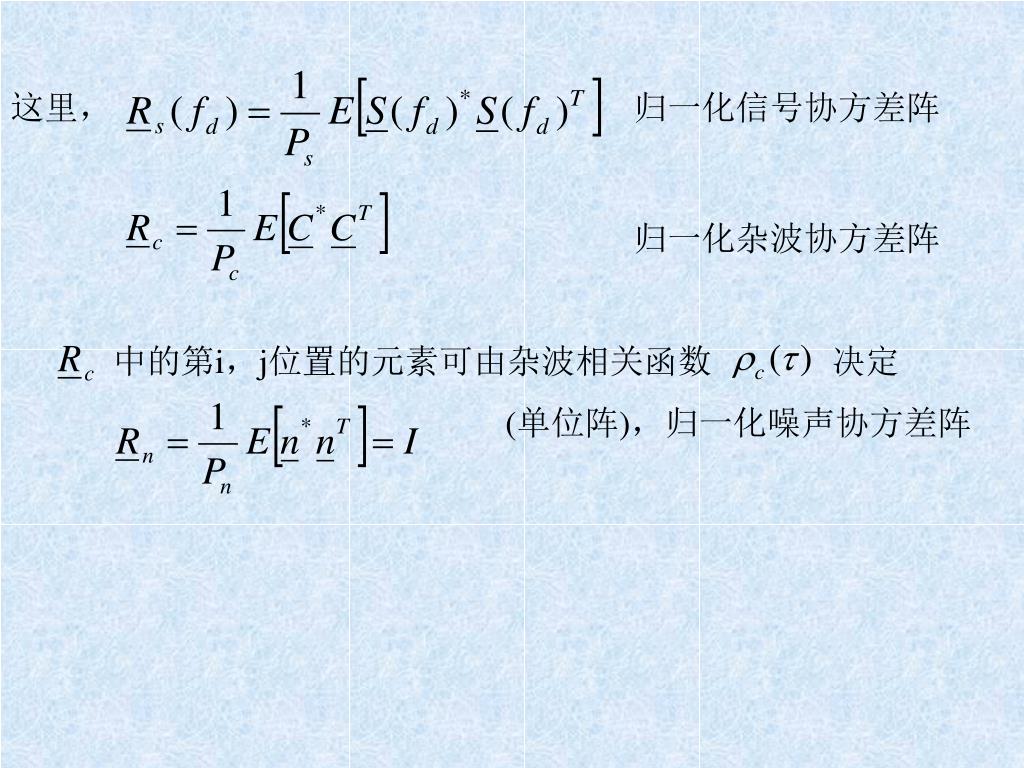 这里， R_s(f_d) = \frac{1}{P_s} E[S(f_d)^* S(f_d)^T] 归一化信号协方差阵
R_c = \frac{1}{P_c} E[C^* C^T] 归一化杂波协方差阵
R_c 中的第i，j位置的元素可由杂波相关函数 ρ_c(τ) 决定
R_n = \frac{1}{P_n} E[n^* n^T] = I (单位阵)，归一化噪声协方差阵